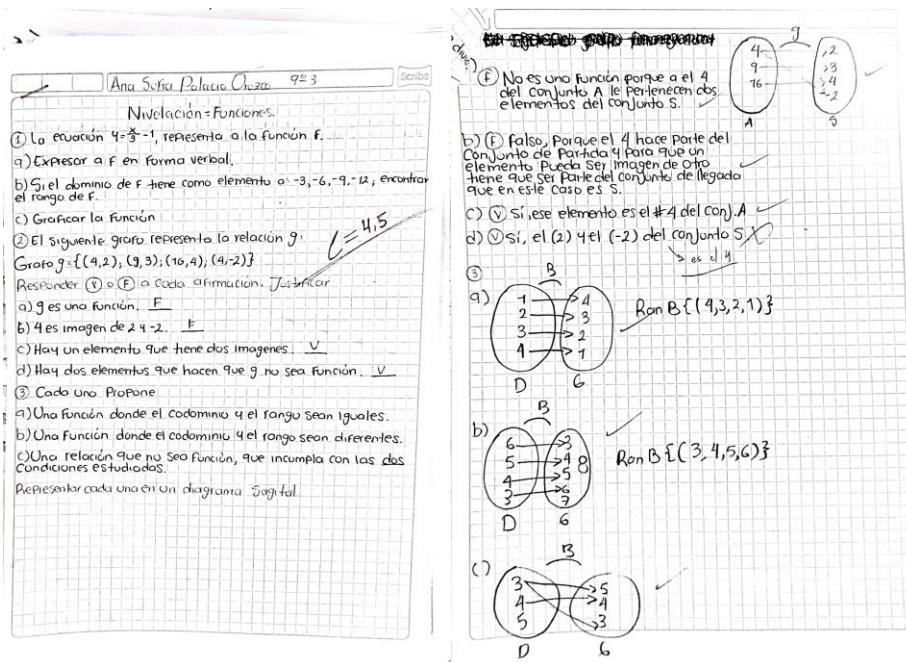 Ana Sofia Palacio Orozco 9°3
Scribe
Nivelación = Funciones.
① La ecuación y=x/3-1, representa a la función f.
a) Expresar a f en forma verbal.
b) Si el dominio de f tiene como elemento a -3,-6,-9,-12, encontrar
el rango de f.
c) Graficar la función
② El siguiente grafo representa la relación g:
Grafo g={(4,2); (9,3); (16,4); (4,-2)}
Responder Ⓥ o Ⓕ a cada afirmación. Justificar
a) g es una función. F
b) 4 es imagen de 2 y -2. F
c) Hay un elemento que tiene dos imagenes. V
d) Hay dos elementos que hacen que g no sea función. V
③ Cada uno Propone
a) Una función donde el codominio y el rango sean iguales.
b) Una función donde el codominio y el rango sean diferentes.
c) Una relación que no sea función, que incumpla con las dos
condiciones estudiadas.
Representar cada una en un diagrama Sagital
C=4,5
a) Ⓕ No es una función porque a el 4
del conjunto A le pertenecen dos
elementos del conjunto S.
g
4 2
9 3
16 4
-2
A S
b) Ⓕ Falso, Porque el 4 hace parte del
Conjunto de Partida y Para que un
elemento Pueda Ser imagen de otro
tiene que ser Parte del conjunto de llegada
que en este caso es S.
c) Ⓥ Sí, ese elemento es el #4 del conj. A
d) Ⓥ Sí, el (2) y el (-2) del conjunto S.
es el 4
③
a) B
1 4
2 3
3 2
4 1
D G
Ran B{(4,3,2,1)}
b) B
6 3
5 4
4 5 8
3 6
7
D G
Ran B{(3,4,5,6)}
c) B
3 5
4 4
5 3
D G